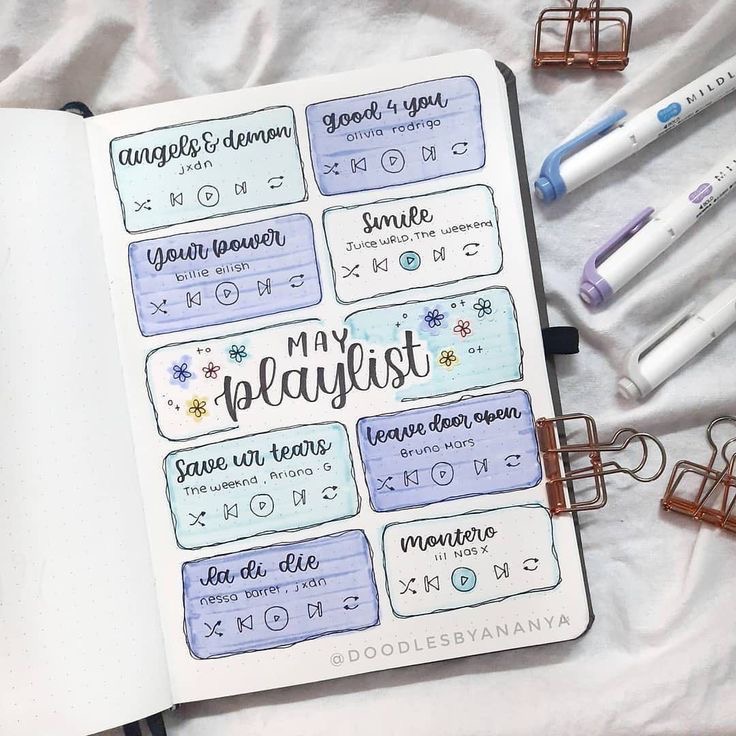 angels & demon
jxdn
good 4 you
olivia rodrigo
your power
billie eilish
Smile
Juice WRLD, The weekend
MAY
playlist
save ur tears
The weeknd, Ariana·G
leave door open
Bruno Mars
la di die
nessa barret, jxdn
montero
lil Nas X
@DOODLESBYANANYA
MILDL
MILD